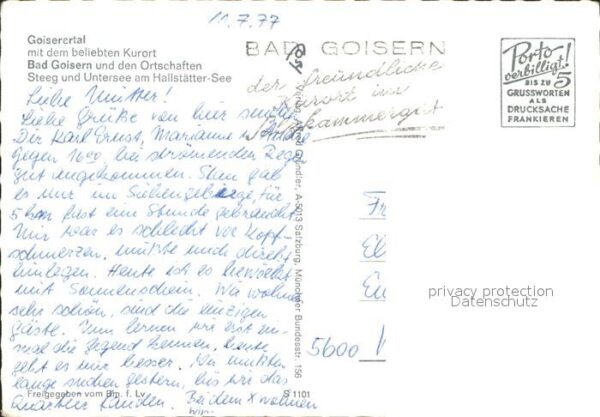 11.7.77
Goiserertal
mit dem beliebten Kurort
Bad Goisern und den Ortschaften
Steeg und Untersee am Hallstätter-See
BAD GOISERN
der freundliche
Kurort im
Salzkammergut
Porto
verbilligt!
BIS ZU 5
GRUSSWORTEN
ALS
DRUCKSACHE
FRANKIEREN
Liebe Mutter!
Liebe Grüße von hier senden
Dir Karl Ernst, Marianne u.
gegen 1600 bei strömendem Regen
gut angekommen. Oben gab
es nur im Siebengebirge, für
5 km fast eine Stunde gebraucht
Mir war es schlecht vor Kopf-
schmerzen, mußte mich direkt
hinlegen. Heute ist es bewölkt
mit Sonnenschein. Wir wohnen
sehr schön, sind die einzigen
Gäste. Nun lernen wir erst ein-
mal die Gegend kennen, heute
geht es mir besser. Wir mußten
lange suchen gestern, bis wir das
Quartier fanden. Bei dem X wohnen
wir.
Verlag Gründler, A-5013 Salzburg, Münchner Bundesstr. 156
Fr
El
Eu
5600
privacy protection
Datenschutz
Freigegeben vom Bm. f. Lv.
S 1101